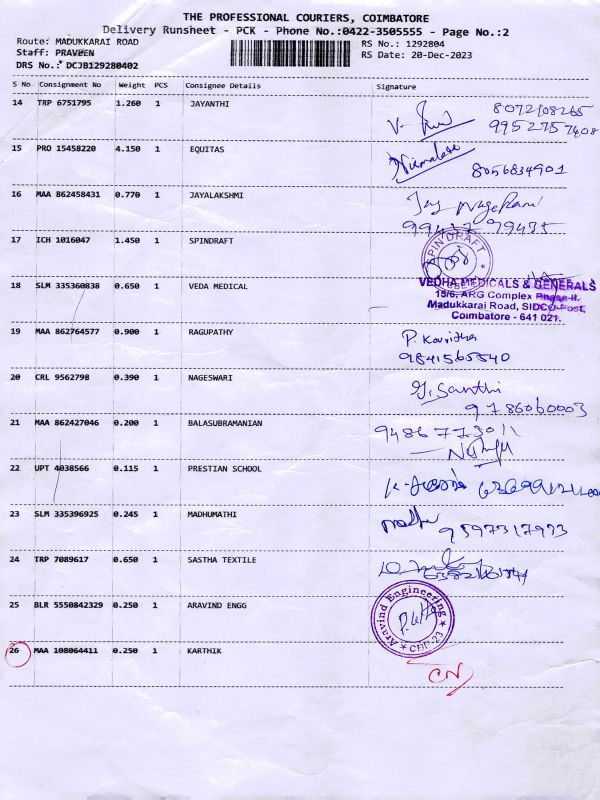 THE PROFESSIONAL COURIERS, COIMBATORE
Delivery Runsheet - PCK - Phone No.:0422-3505555 - Page No.:2
Route: MADUKKARAI ROAD RS No.: 1292804
Staff: PRAVEEN RS Date: 20-Dec-2023
DRS No.: DCJB129280402
S No Consignment No Weight PCS Consignee Details Signature
14 TRP 6751795 1.260 1 JAYANTHI 8072108265
9952757408
15 PRO 15458220 4.150 1 EQUITAS Nirmala
8056834901
16 MAA 862458431 0.770 1 JAYALAKSHMI
17 ICH 1016047 1.450 1 SPINDRAFT SPIN DRAFT
18 SLM 335360838 0.650 1 VEDA MEDICAL VEDHA MEDICALS & GENERALS
15/6, ARG Complex Phase-II,
Madukkarai Road, SIDCO-Post,
Coimbatore - 641 021.
19 MAA 862764577 0.900 1 RAGUPATHY P. Kavitha
9841565540
20 CRL 9562798 0.390 1 NAGESWARI G. Santhi
9786060003
21 MAA 862427046 0.200 1 BALASUBRAMANIAN 9486773011
22 UPT 4038566 0.115 1 PRESTIAN SCHOOL
23 SLM 335396925 0.245 1 MADHUMATHI madhu
9597317973
24 TRP 7089617 0.650 1 SASTHA TEXTILE
25 BLR 5550842329 0.250 1 ARAVIND ENGG Aravind Engineering
CBE-23
26 MAA 108064411 0.250 1 KARTHIK
CN